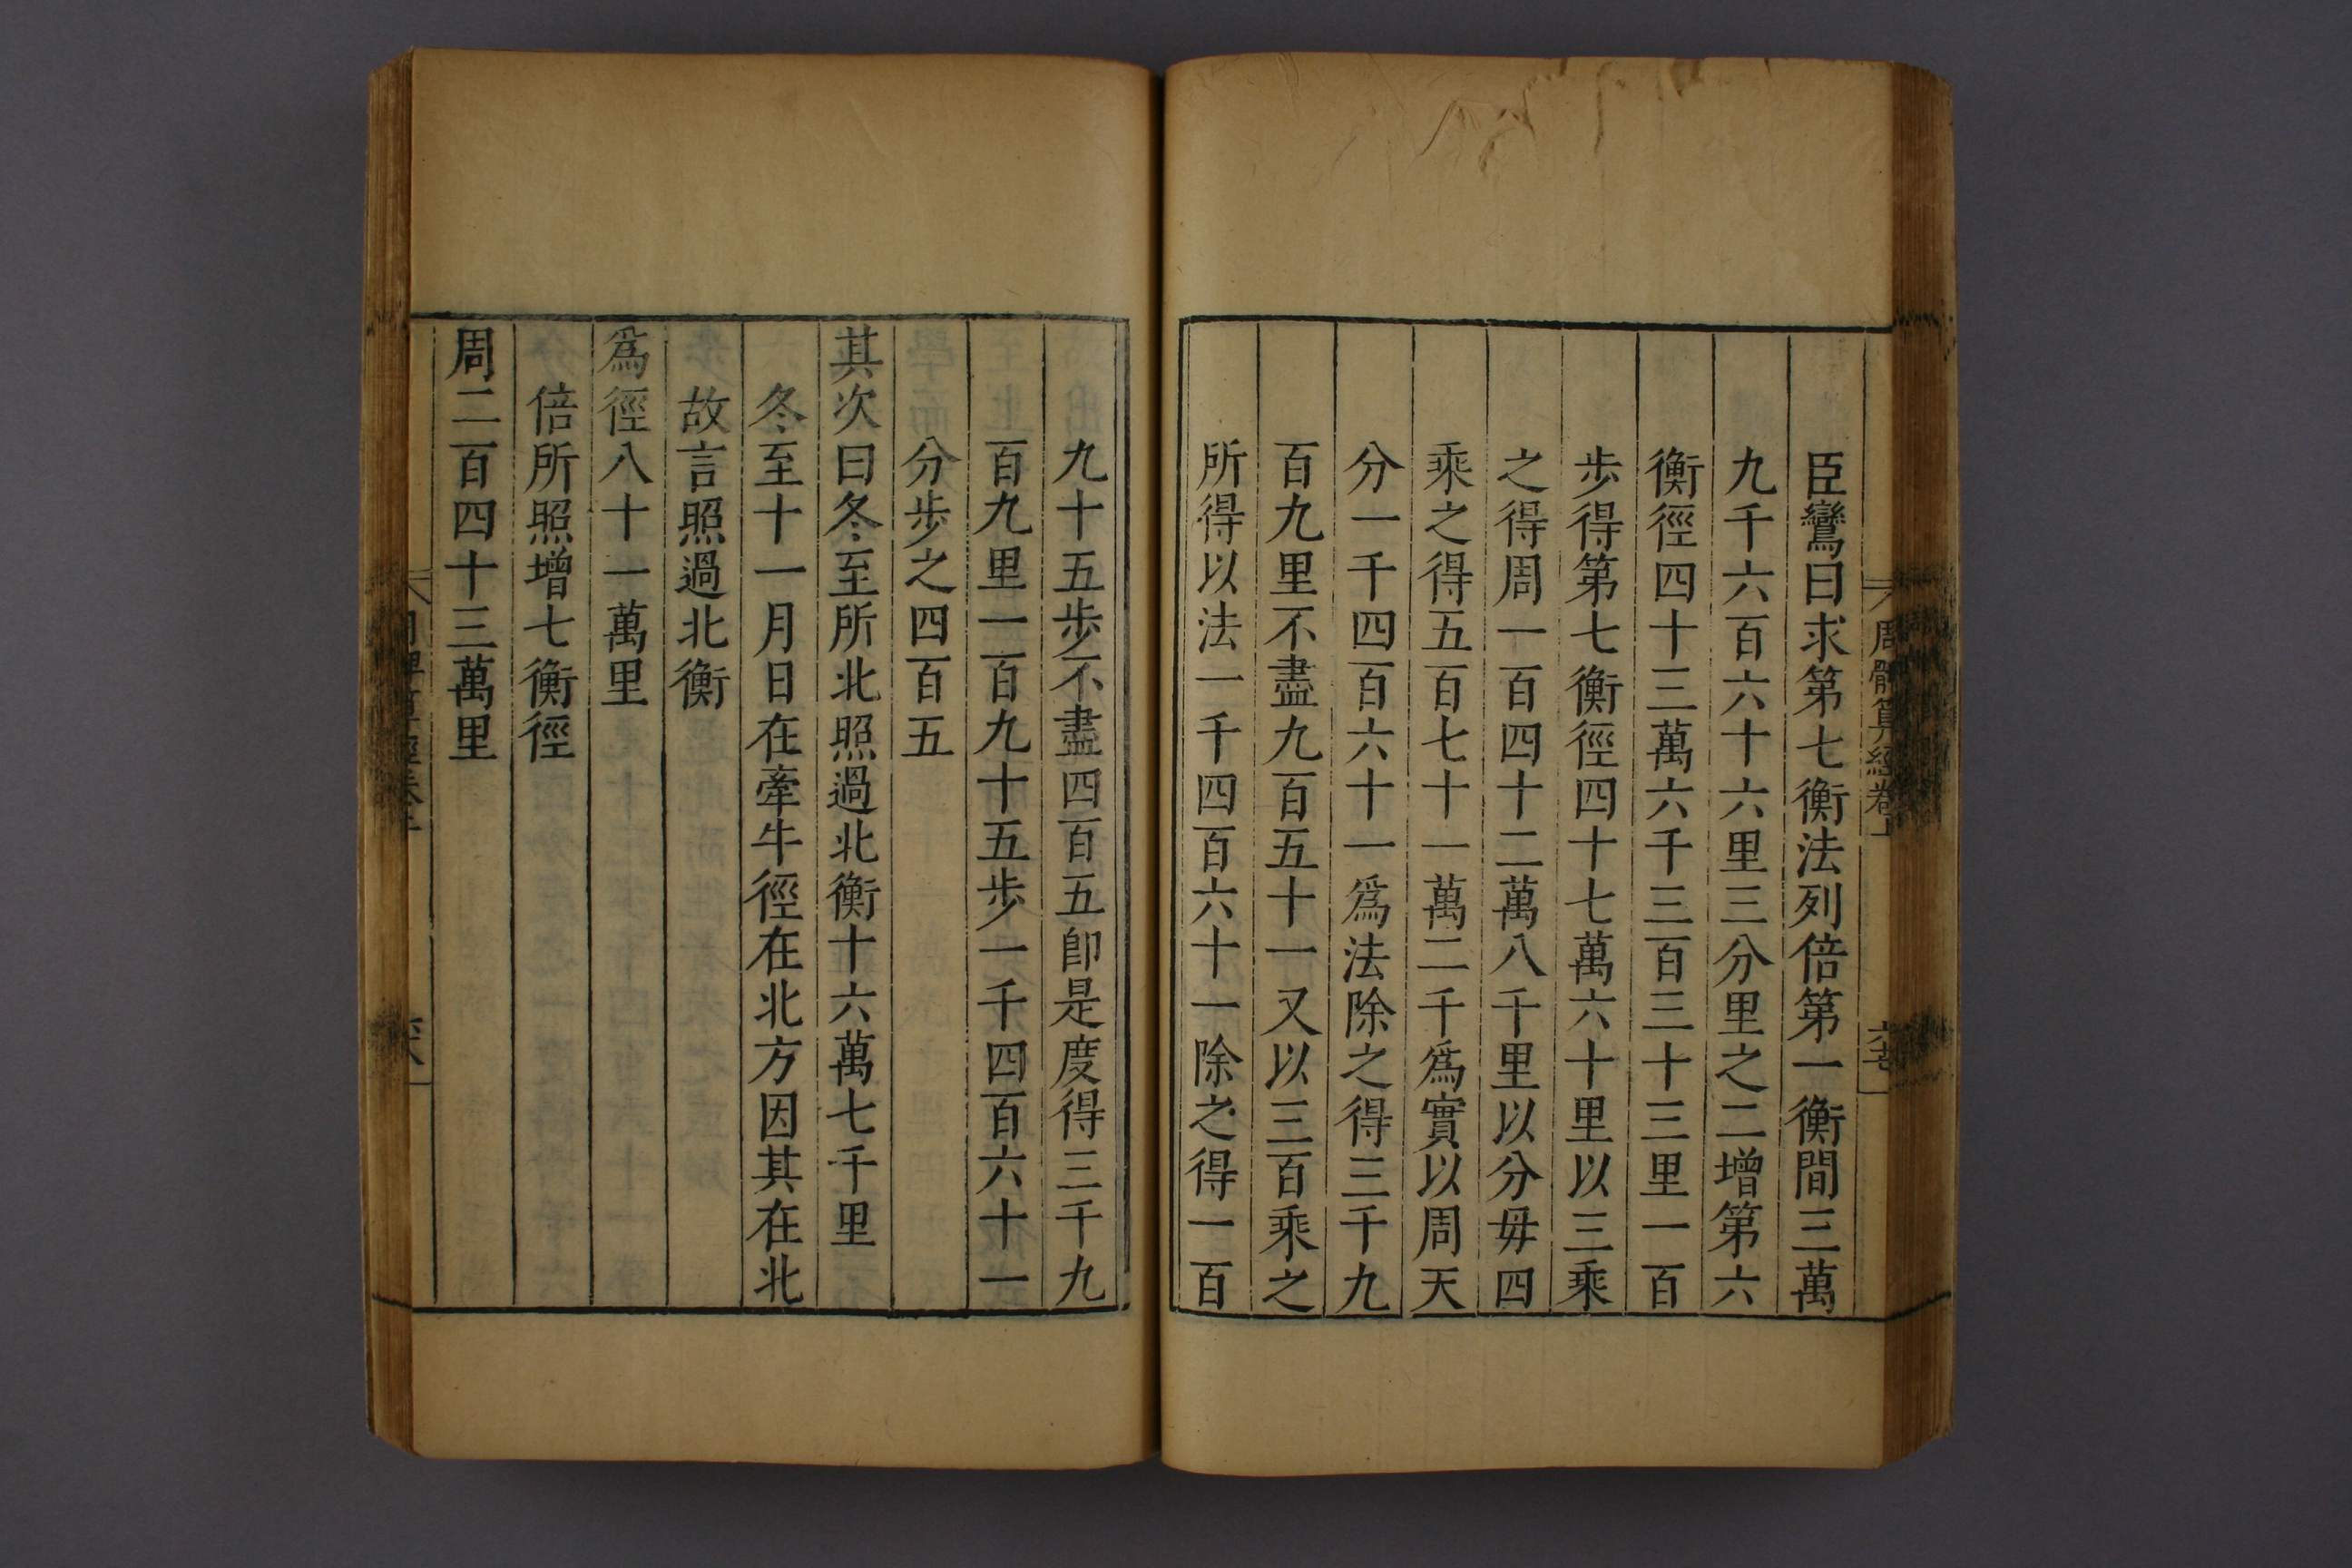 周髀算經卷上
臣鸞曰求第七衡法列倍第一衡間三萬
九千六百六十六里三分里之二增第六
衡徑四十三萬六千三百三十三里一百
步得第七衡徑四十七萬六十里以三乘
之得周一百四十二萬八千里以分毋四
乘之得五百七十一萬二千爲實以周天
分一千四百六十一爲法除之得三千九
百九里不盡九百五十一又以三百乘之
所得以法一千四百六十一除之得一百
九十五步不盡四百五卽是度得三千九
百九里一百九十五步一千四百六十一
分步之四百五
其次曰冬至所北照過北衡十六萬七千里
冬至十一月日在牽牛徑在北方因其在北
故言照過北衡
爲徑八十一萬里
倍所照增七衡徑
周二百四十三萬里